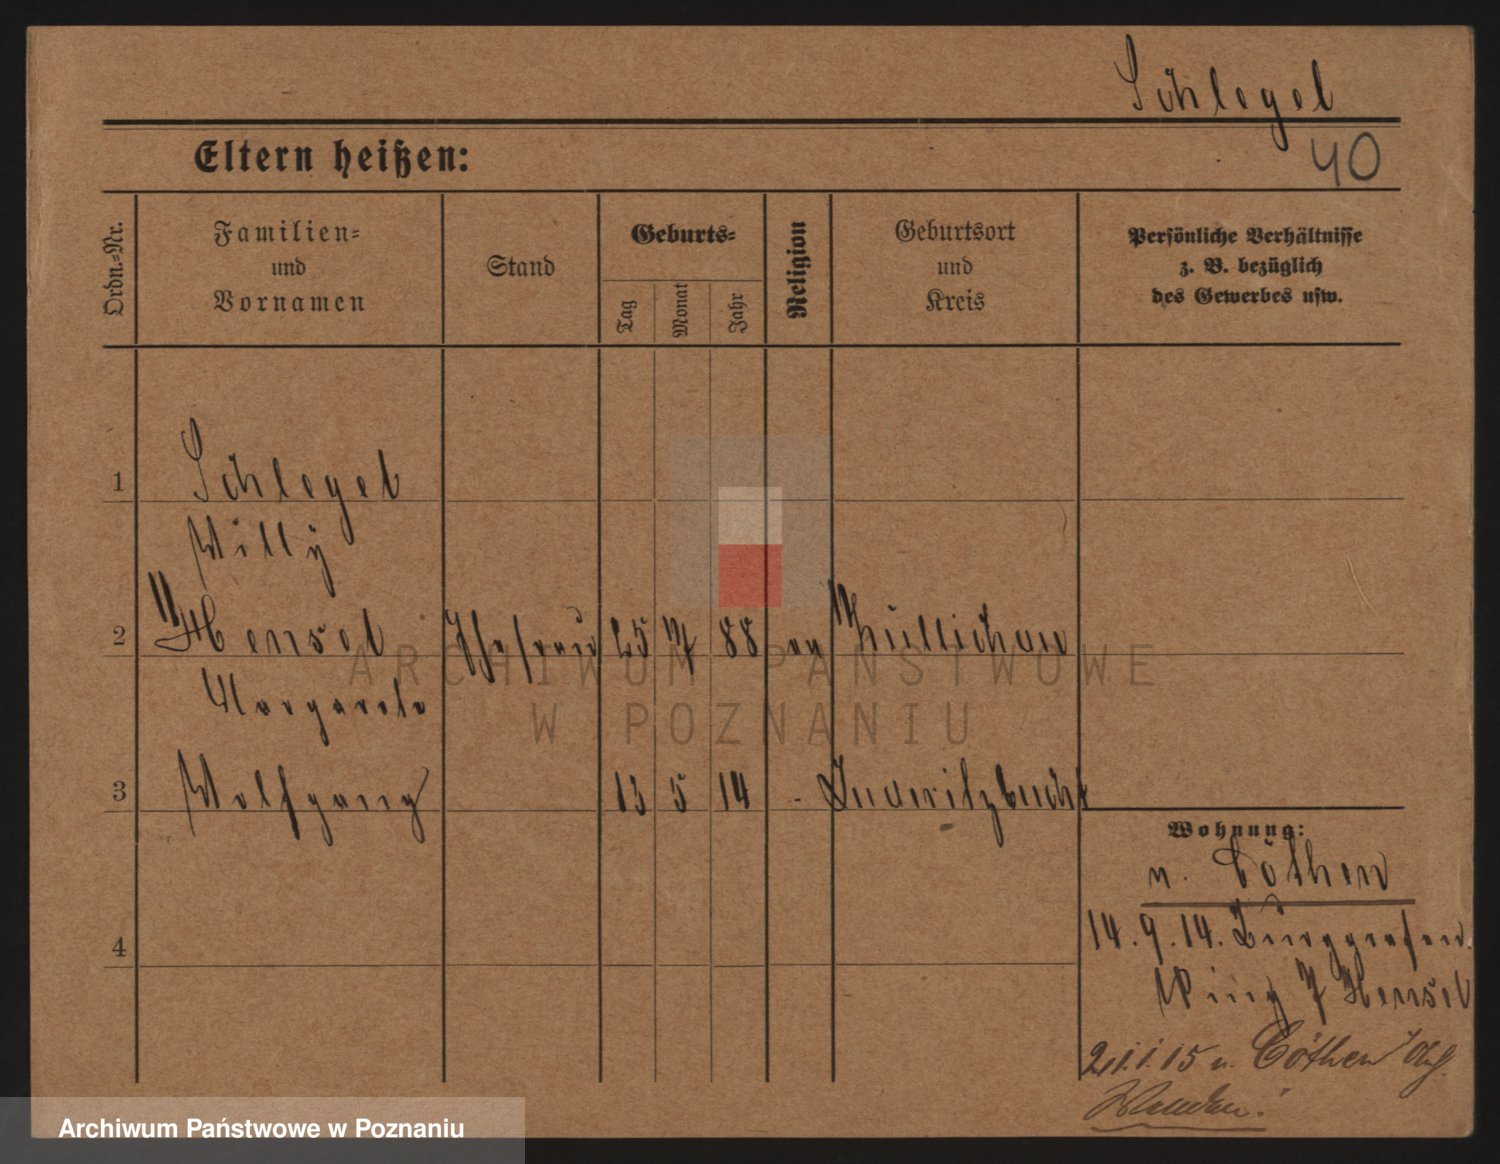 Schlegel
40
Eltern heißen:
Ordn.=Nr.
Familien=
und
Vornamen
Stand
Geburts=
Tag
Monat
Jahr
Religion
Geburtsort
und
Kreis
Persönliche Verhältnisse
z. B. bezüglich
des Gewerbes usw.
1
Schlegel
Willy
2
Hensel Ehefrau 25 88 ev Züllichau
Margarete
3
Wolfgang 13 5 14 -
Wohnung:
n. Cöthen
4
14.9.14. Burggrafen
Ring 7 Hensel
21.1.15 n. Cöthen
ARCHIWUM PAŃSTWOWE
W POZNANIU
Archiwum Państwowe w Poznaniu